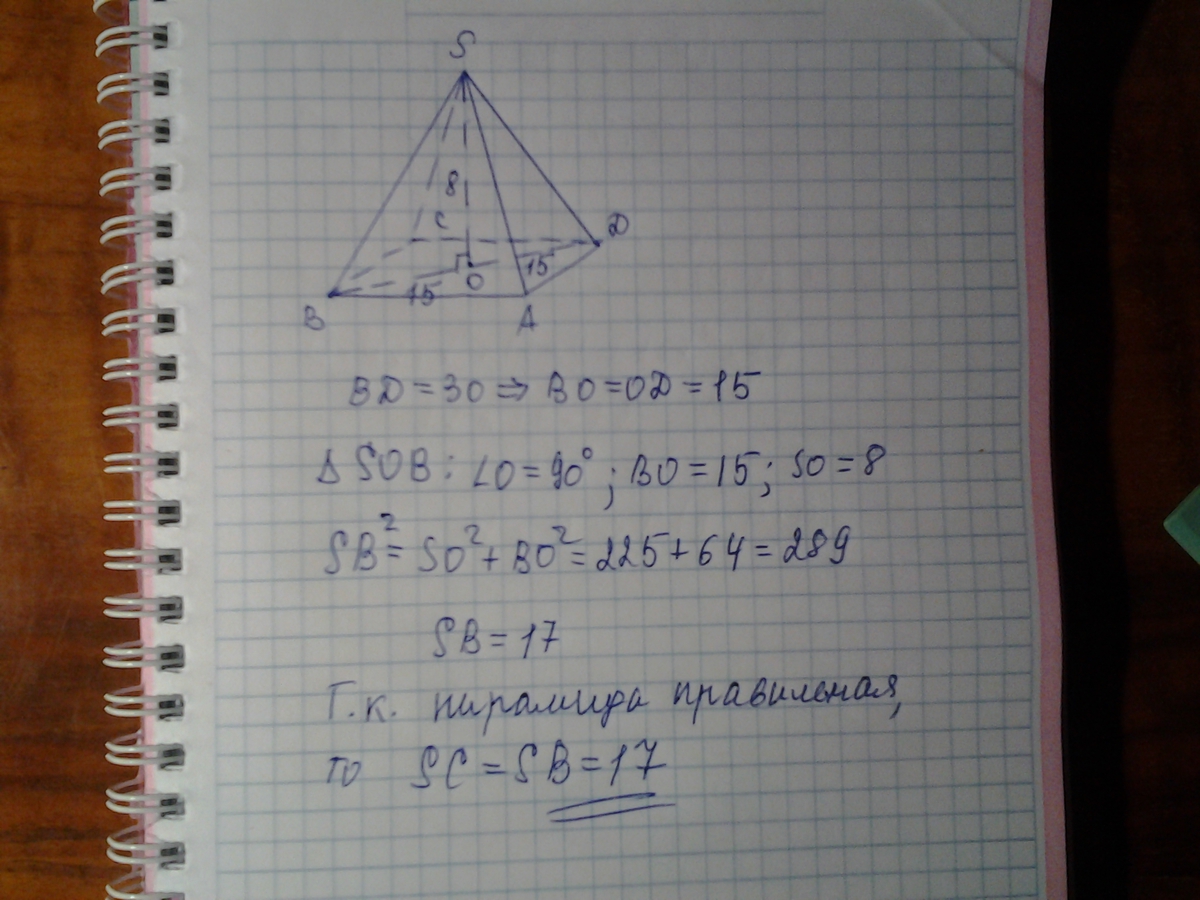 S
8
C
D
15
O
15
B
A
BD = 30 ⇒ BO = OD = 15
Δ SOB: ∠O = 90°; BO = 15; SO = 8
SB² = SO² + BO² = 225 + 64 = 289
SB = 17
Т.к. пирамида правильная,
то SC = SB = 17